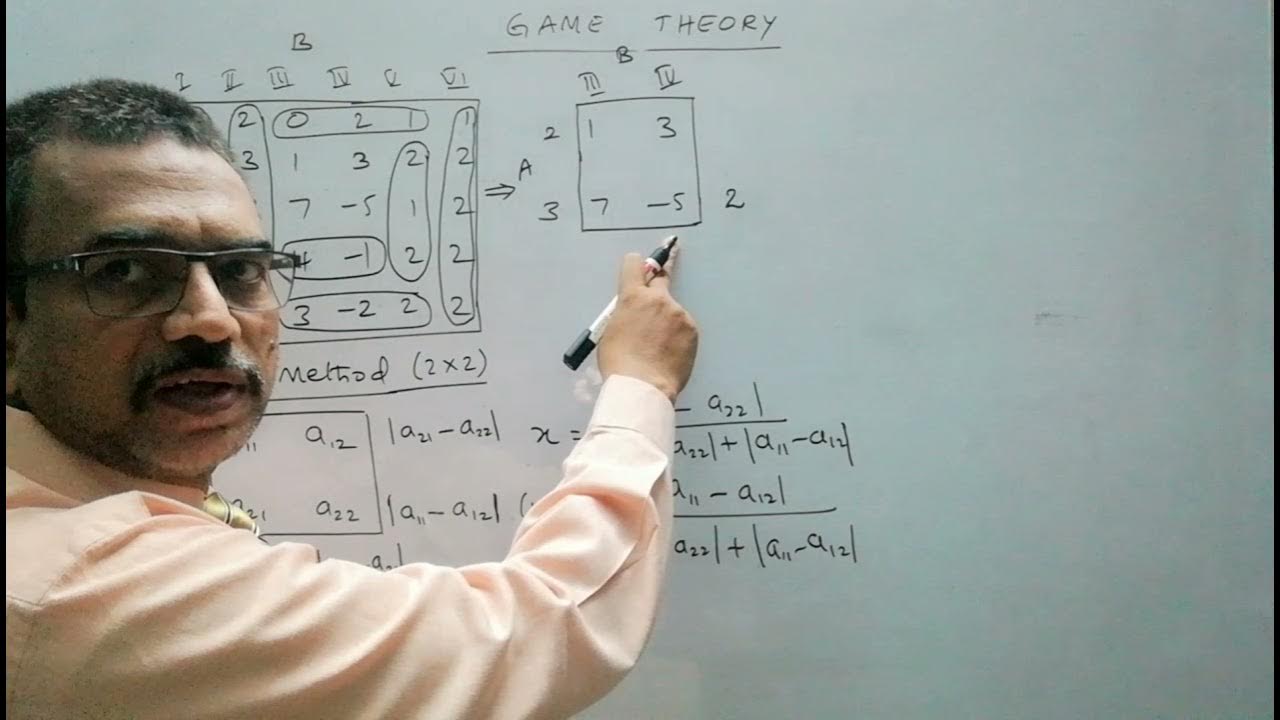 GAME THEORY
B
I II III IV V VI
2 0 2 1 1
3 1 3 2 2
7 -5 1 2
4 -1 2 2
3 -2 2 2
B
III IV
2 1 3
⇒ A
3 7 -5 2
Method (2×2)
a₁₂ |a₂₁ - a₂₂|
a₂₁ a₂₂ |a₁₁ - a₁₂|
x = - a₂₂|
a₂₂| + |a₁₁ - a₁₂|
a₁₁ - a₁₂|
a₂₂| + |a₁₁ - a₁₂|